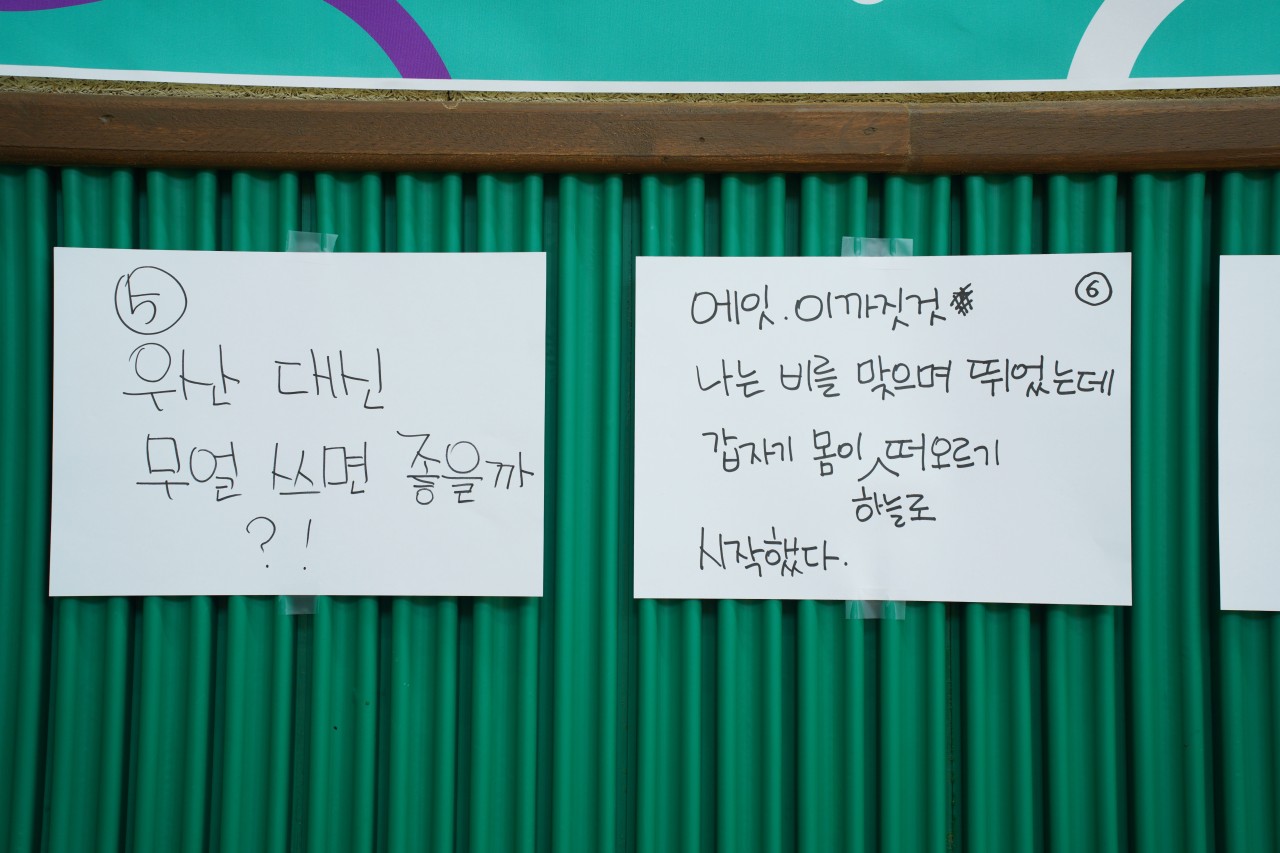 ⑤
우산 대신
무얼 쓰면 좋을까
?!
⑥
에잇. 이까짓것
나는 비를 맞으며 뛰었는데
갑자기 몸이 떠오르기
하늘로
시작했다.